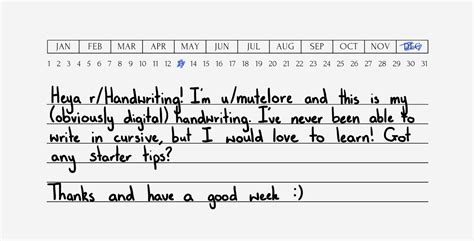 JAN FEB MAR APR MAY JUN JUL AUG SEP OCT NOV DEC
1 2 3 4 5 6 7 8 9 10 11 12 14 15 16 17 18 19 20 21 22 23 24 25 26 27 28 29 30 31
Heya r/Handwriting! I'm u/mutelore and this is my
(obviously digital) handwriting. I've never been able to
write in cursive, but I would love to learn! Got
any starter tips?
Thanks and have a good week :)